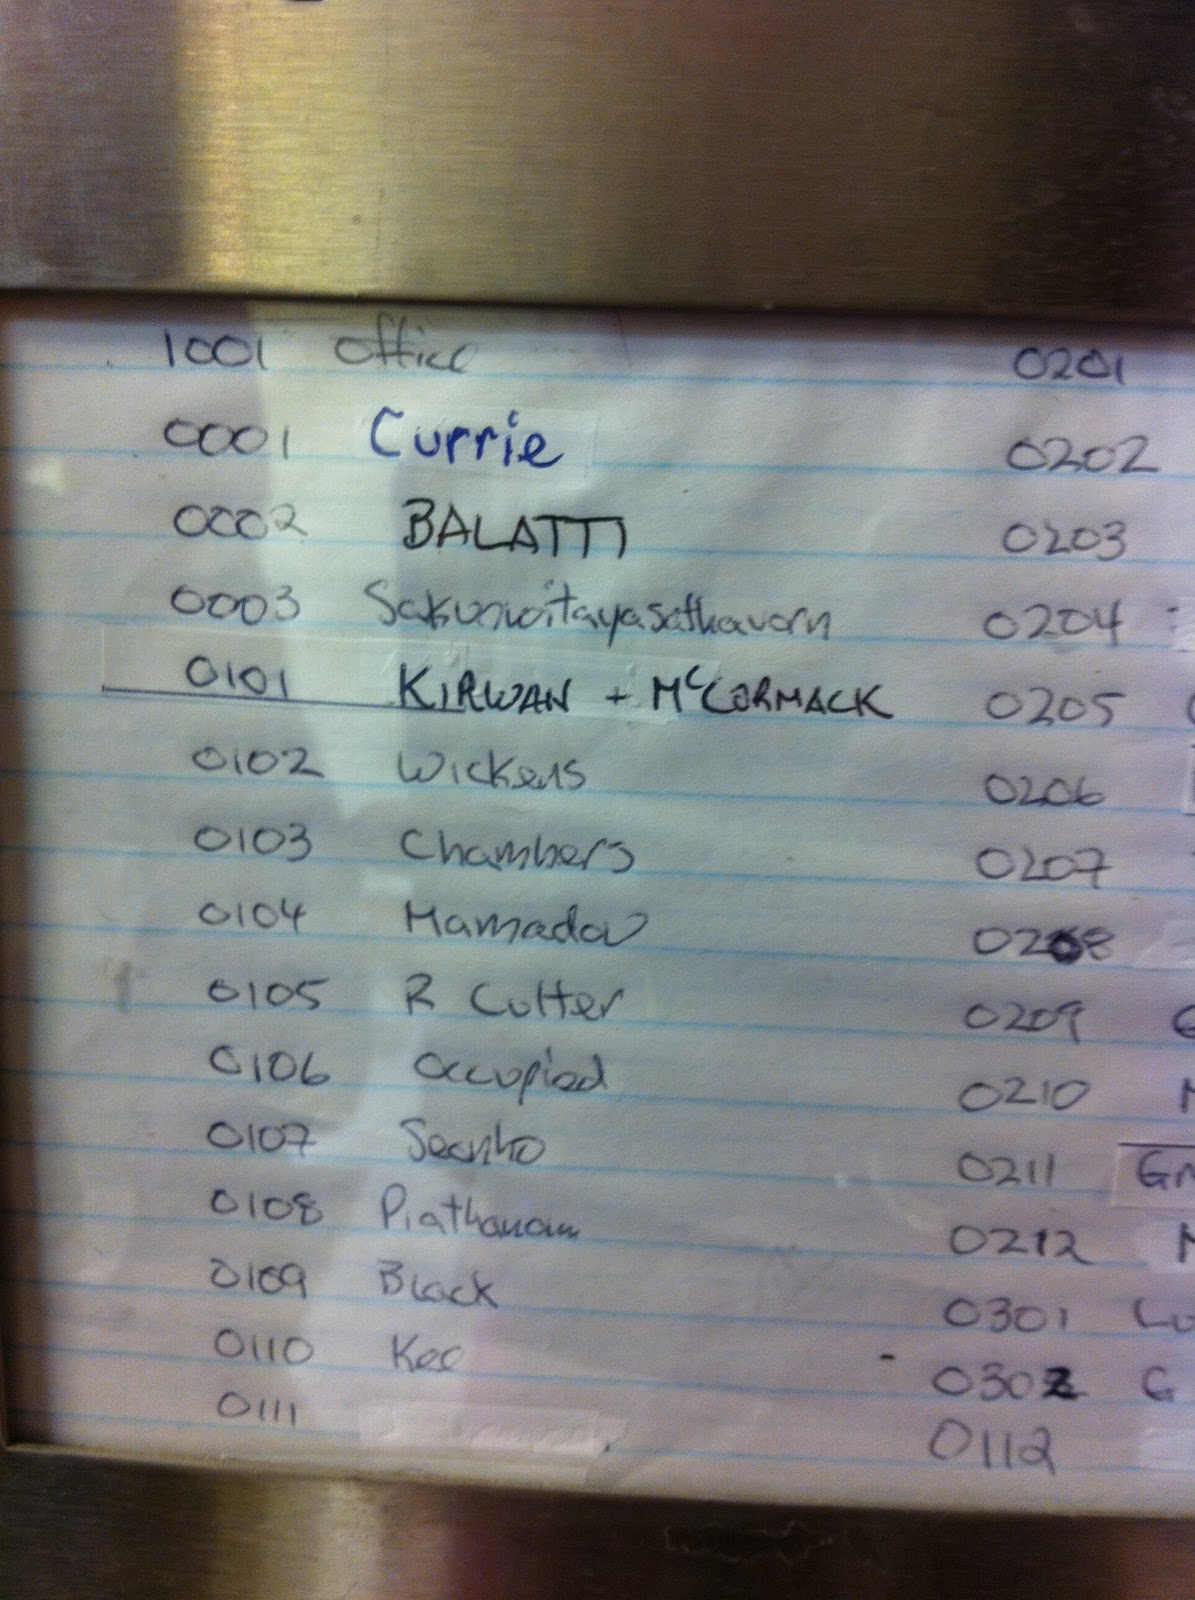 1001 Office 0201
0001 Currie 0202
0002 BALATTI 0203
0003 Sakunwitayasathavorn 0204
0101 KIRWAN + McCORMACK 0205
0102 Wickens 0206
0103 Chambers 0207
0104 Mamadov 0208
0105 R Cutter 0209
0106 Occupied 0210
0107 0211
0108 0212
0109 Black 0301
0110 Kee 0302
0111 0112